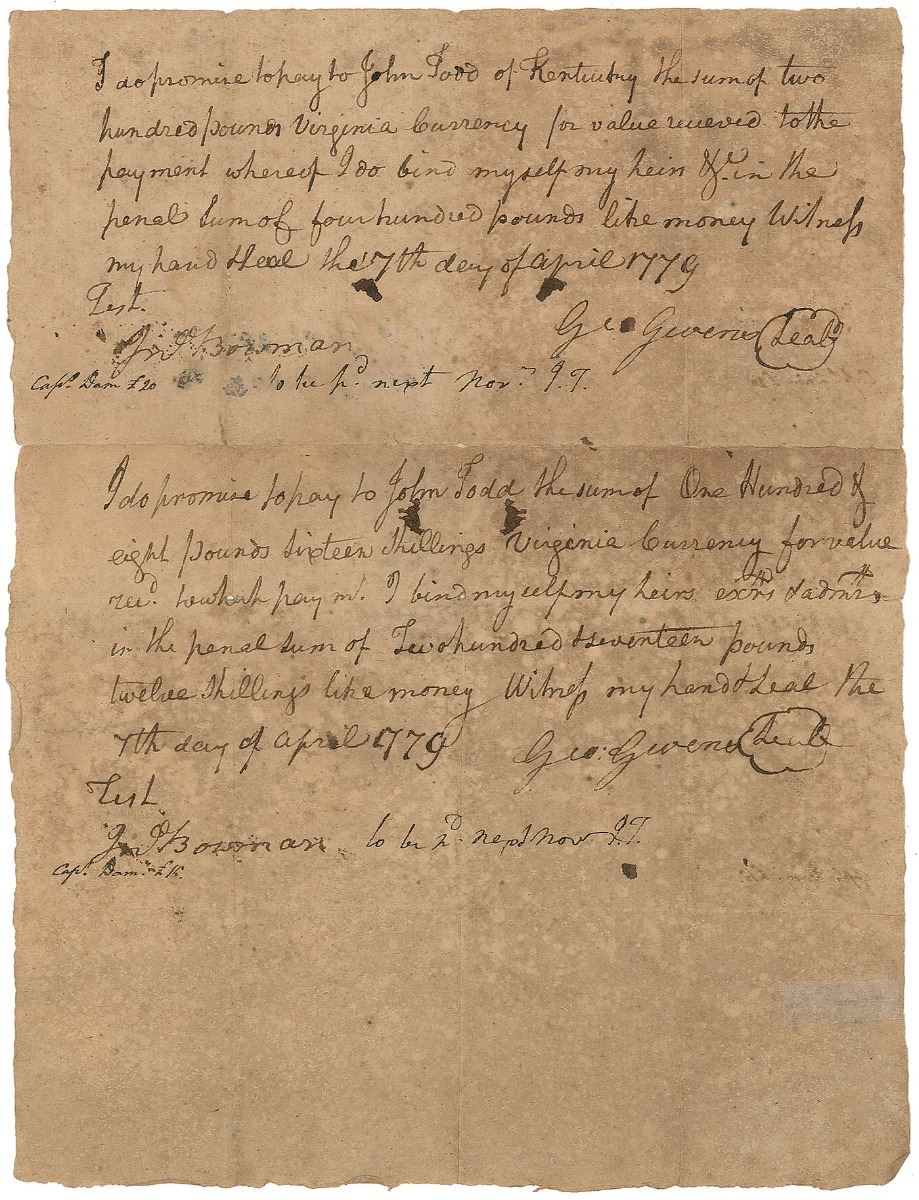 I do promise to pay to John Todd of Kentucky the sum of two
hundred pounds Virginia Currency for value receved to the
payment whereof I do bind myself my heirs &c. in the
penal Sum of four hundred pounds like money Witness
my hand & Seal the 7th day of april 1779
Test.
Geo Gevens Seal
Jno Bowman
Capt. Dam £20 to be pd. next Nov. J.T.
I do promise to pay to John Todd the sum of One Hundred &
eight pounds Sixteen Shillings Virginia Currency for value
recd. to which paymt. I bind myself my heirs exrs & admrs
in the penal Sum of Two hundred & seventeen pounds
twelve Shillings like money Witness my hand & Seal the
7th day of april 1779 Geo: Gevens Seal
Test
Jno Bowman to be pd. next Nov J.T.
Capt. Dam.